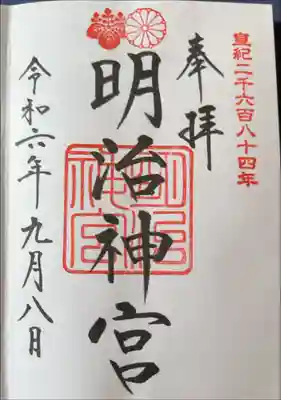 皇紀二千六百八十四年
奉拝
明治神宮
令和六年九月八日